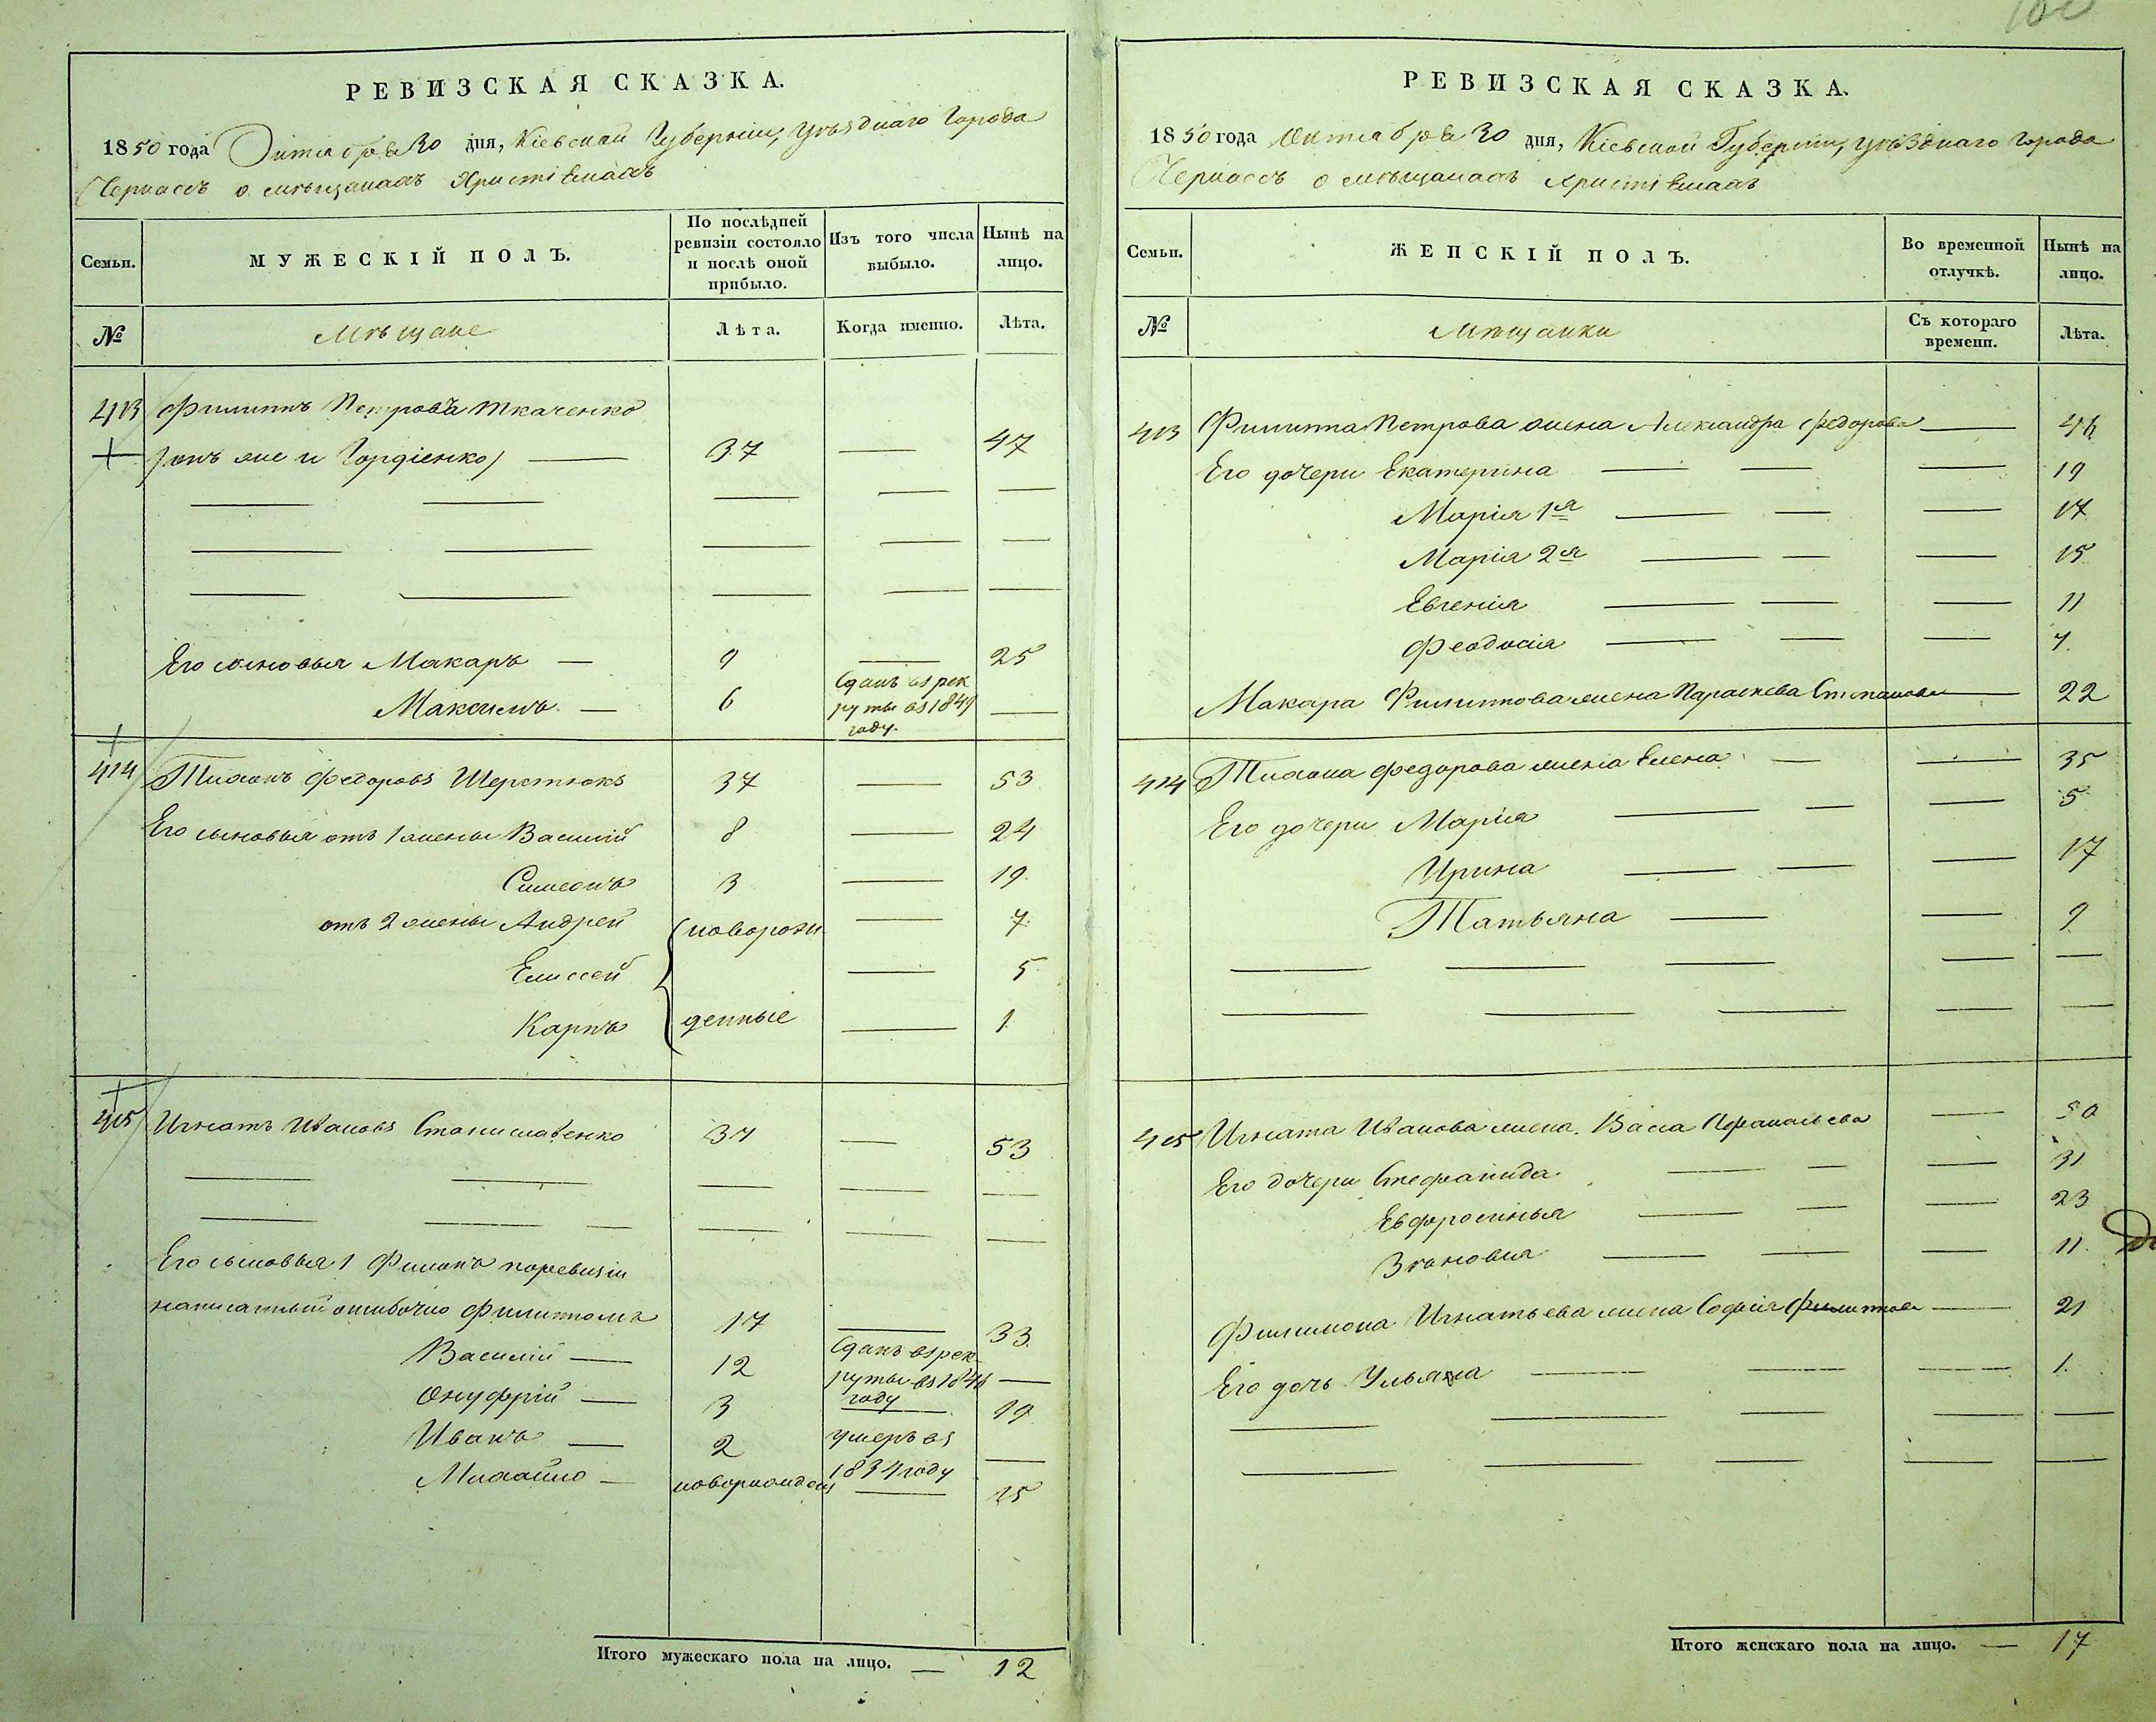 РЕВИЗСКАЯ СКАЗКА.
1850 года Октября 30 дня, Кіевской Губерніи, уѣзднаго Города
Черкассъ о мѣщанахъ Христіанахъ
Семьи.
МУЖЕСКІЙ ПОЛЪ.
По послѣдней
ревизіи состояло
и послѣ оной
прибыло.
Изъ того числа
выбыло.
Нынѣ на
лицо.
№
Мѣщане
Лѣта.
Когда именно.
Лѣта.
413 Филиппъ Петровъ Ткаченко
(онъ же и Гордіенко) — 37 — 47
Его сыновья Макаръ — 9 — 25
Максимъ — 6 Сданъ въ рек
руты въ 1849 —
году.
414 Тихонъ Федоровъ Шерстюкъ 37 — 53
Его сыновья отъ 1 жены Василій 8 — 24
Симеонъ 3 — 19
отъ 2 жены Андрей (новорож — 7
Елиссей — 5
Карпъ денные — 1
415 Игнатъ Ивановъ Станиславенко 37 — 53
Его сыновья 1 Филонъ поревизіи
написанный ошибочно Филиппомъ 17 — 33
Василій — 12 Сданъ въ рек
руты въ 184 —
году
Онуфрій — 3 — 19
Иванъ — 2 умеръ въ
1834 году —
Михайло — новорожден — 15
Итого мужескаго пола на лицо. — 12
РЕВИЗСКАЯ СКАЗКА.
1850 года Октября 30 дня, Кіевской Губерніи, уѣзднаго Города
Черкассъ о мѣщанахъ Христіанахъ
Семьи.
ЖЕНСКІЙ ПОЛЪ.
Во временной
отлучкѣ.
Нынѣ на
лицо.
№
Мѣщанки
Съ котораго
времени.
Лѣта.
413 Филиппа Петрова жена Александра Федорова — 46
Его дочери Екатерина — 19
Марія 1я — 17
Марія 2я — 15
Евгенія — 11
Феодосія — 7
Макара Филиппова жена Параскева Степанова — 22
414 Тихона Федорова жена Елена — 35
Его дочери Марія — 5
Ирина — 17
Татьяна — 9
415 Игната Иванова жена Васса — 50
Его дочери Стефанида — 31
Евфросинья — 23
Зѣновія — 11
Филимона Игнатьева жена Софія Филиппова — 21
Его дочь Ульяна — 1
Итого женскаго пола на лицо. — 17